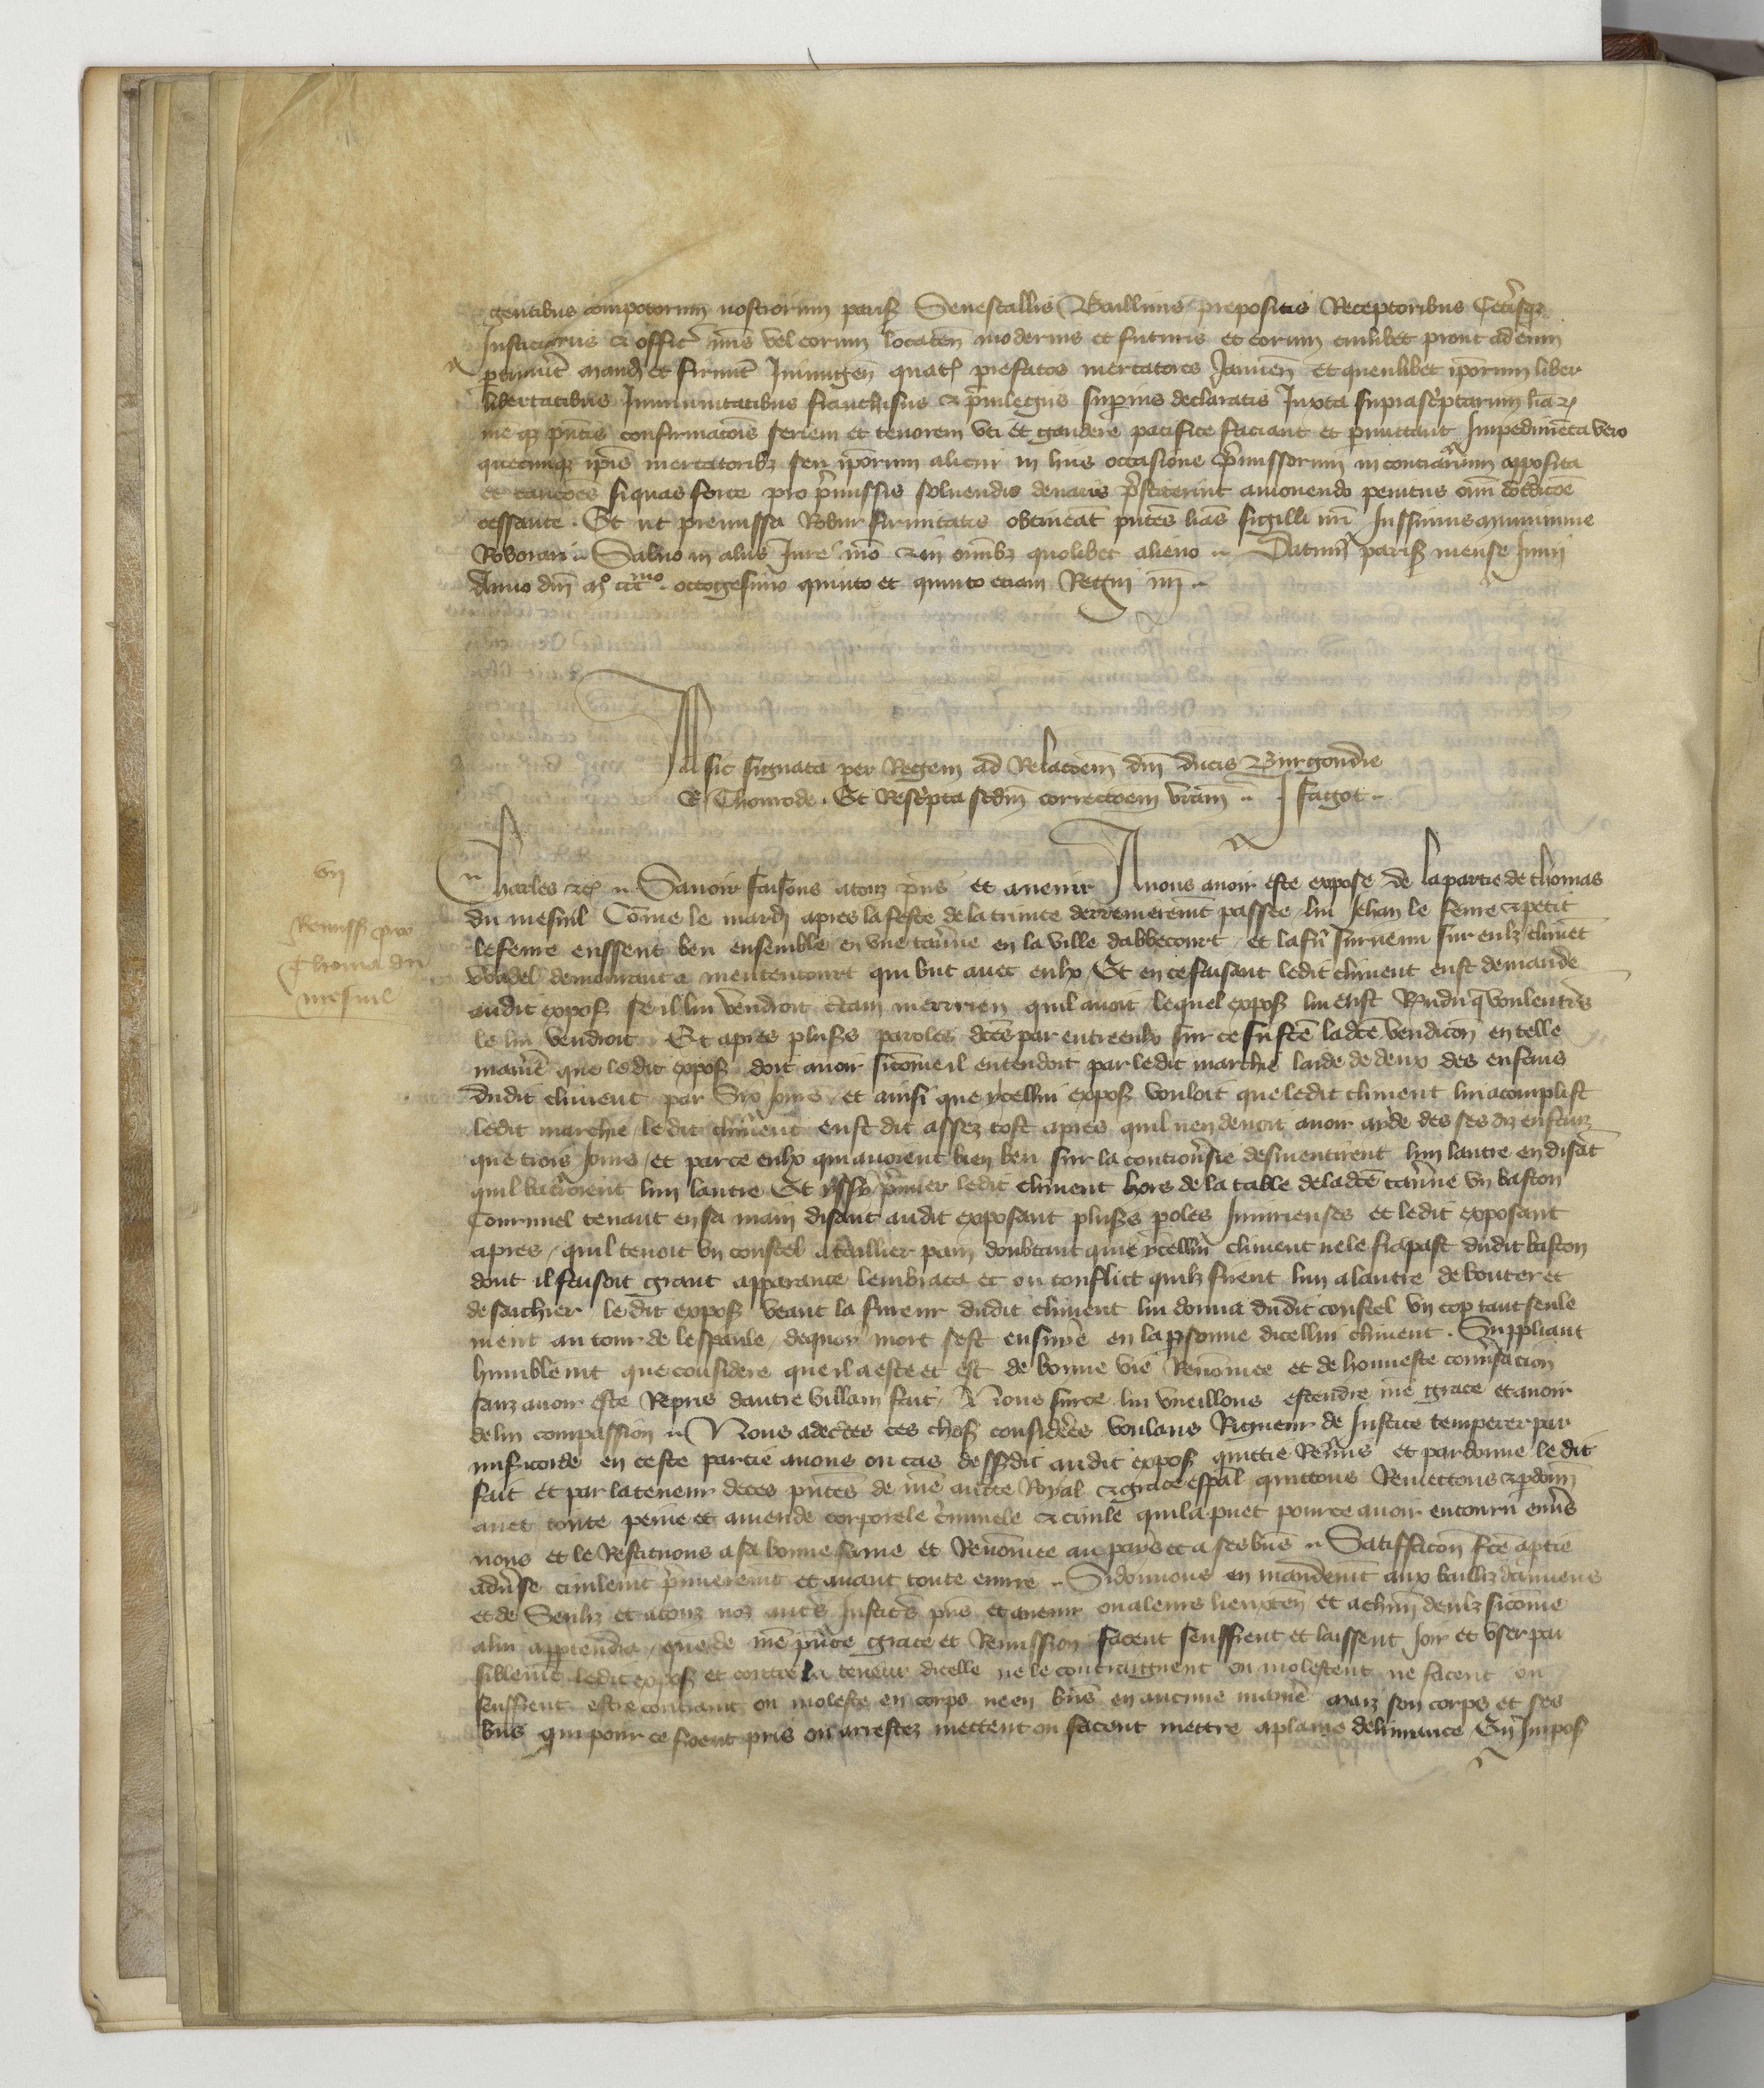 gentibus compotorum nostrorum paris Senescallis Baillivis prepositis Receptoribus Ceterisque
Justiciariis et offic nris vel eorum locaten modernis et futuris et eorum cuilibet prout ad eum
ptinuit mand et firmit Iniungen quatenus prefatos mercatores Januen et quenlibet iporum
libertatibus Immunitatibus franchisiis et privilegiis superius declaratis Juxta suprascriptarum lrarum
nre que pntis confirmacois seriem et tenorem uti et gaudere pacifice faciant et pmittant Impedimenta vero
quecunque ipis mercatoribus seu iporum alicui in hiis occasione pmissorum in contrarium apposita
et cautoes si quas forte pro pmissis solvendis denariis pstiterint amovendo penitus
cessante. Et ut premissa Robur firmitatis obtineat pntes lras sigilli nri Jussimus munimine
Roborari. Salvo in aliis Jure nro et in omibus quolibet alieno. Datum paris mense Junii
Anno dni M° ccc mo octogesimo quinto et quinto etiam Regni nri.
sic signata per Regem ad Relatoem dni ducis Burgondie
Thonrode. Et Rescripta scdm correctoem vram. J fagot.
vii
Remissio pro
Thoma du
mesnil
Charles etc. Savoir faisons a touz pns et avenir A nous avoir este expose de la partie de thomas
du mesnil Come le mardi apres la feste de la trinite derrenierement passee lui Jehan le femre et petit
le femre eussent beu ensemble en une taverne en la ville dabbecourt et la fu survenu sur eulz climent
demourant a mentencourt qui but avec eulx Et en ce faisant ledit climent eust demande
audit expos se il lui vendroit ctain merrien quil avoit lequel expos lui eust Rndu que voulentrs
le lui vendroit Et apres pluss paroles dces par entreeulx sur ce fu fce ladce vendicon en telle
manie que ledit expos doit avoir sicome il entendoit par ledit marchie laide de deux des enfans
dudit climent par Six Jours et ainsi que ycellui expos vouloit que ledit climent lui acomplist
ledit marchie ledit climent eust dit assez tost apres quil nen devoit avoir aide des ses diz enfanz
que trois Jours et parce eulx qui avoient bien beu sur la controvsie desmentirent lun lautre en disat
quil batroient lun lautre Et yssy pmier ledit climent hors de la table de ladce tavne un baston
Cournuel tenant en sa main disant audit exposant pluss poles Injurieuses et ledit exposant
apres quil tenoit un coustel a taillier pain doubtant que ycellui climent ne le frapast dudit baston
dont il faisoit grant apparance lembraca et ou conflict quilz firent lun a lautre de bouter et
de sachier ledit expos veant la fureur dudit climent lui donna dudit coustel un cop tant seule
ment au tour de lespaule dequoy mort sest ensuyve en la psonne dicellui climent. Suppliant
humblemt que considere que il a este et est de bonne vie Renomee et de honneste convsacion
sanz avoir este Repris dautre villain fait Nous sur ce lui vueillons estendre nre grace et avoir
de lui compassion. Nous adcertes ces chos considerees voulans Rigueur de Justice temperer par
misicorde en ceste partie avons ou cas dessusdit audit expos quittie Remis et pardonne ledit
fait Et par la teneur de ces pntes de nre aucte Royal et grace espal quittons Remettons et pdon
avec toute peine et amende corporele cminele et civile quil a puet pour ce avoir encouru envs
nous et le Restituons a sa bonne fame et Renomee au pays et a ses bns. Satiffacon fce a ptie
advse civilemt pmieremt et avant toute euvre. Si donnons en mandemt aux bailliz damiens
et de Senliz et a touz noz autrs Justics pns et avenir ou a leurs lieuxten et a chun deulz sicome
a lui apptendra que de nre pnte grace et Remission facent seuffrent et laissent Joir et user pai
siblemt ledit expos et contre la teneur dicelle ne le contraignent ou molestent ne facent ou
seuffrent estre contraint ou moleste en corps ne en bns en aucune manie Maiz son corps et ses
bns qui pour ce soent pris ou arrestez mettent ou facent mettre a plaine delivrance En Impos